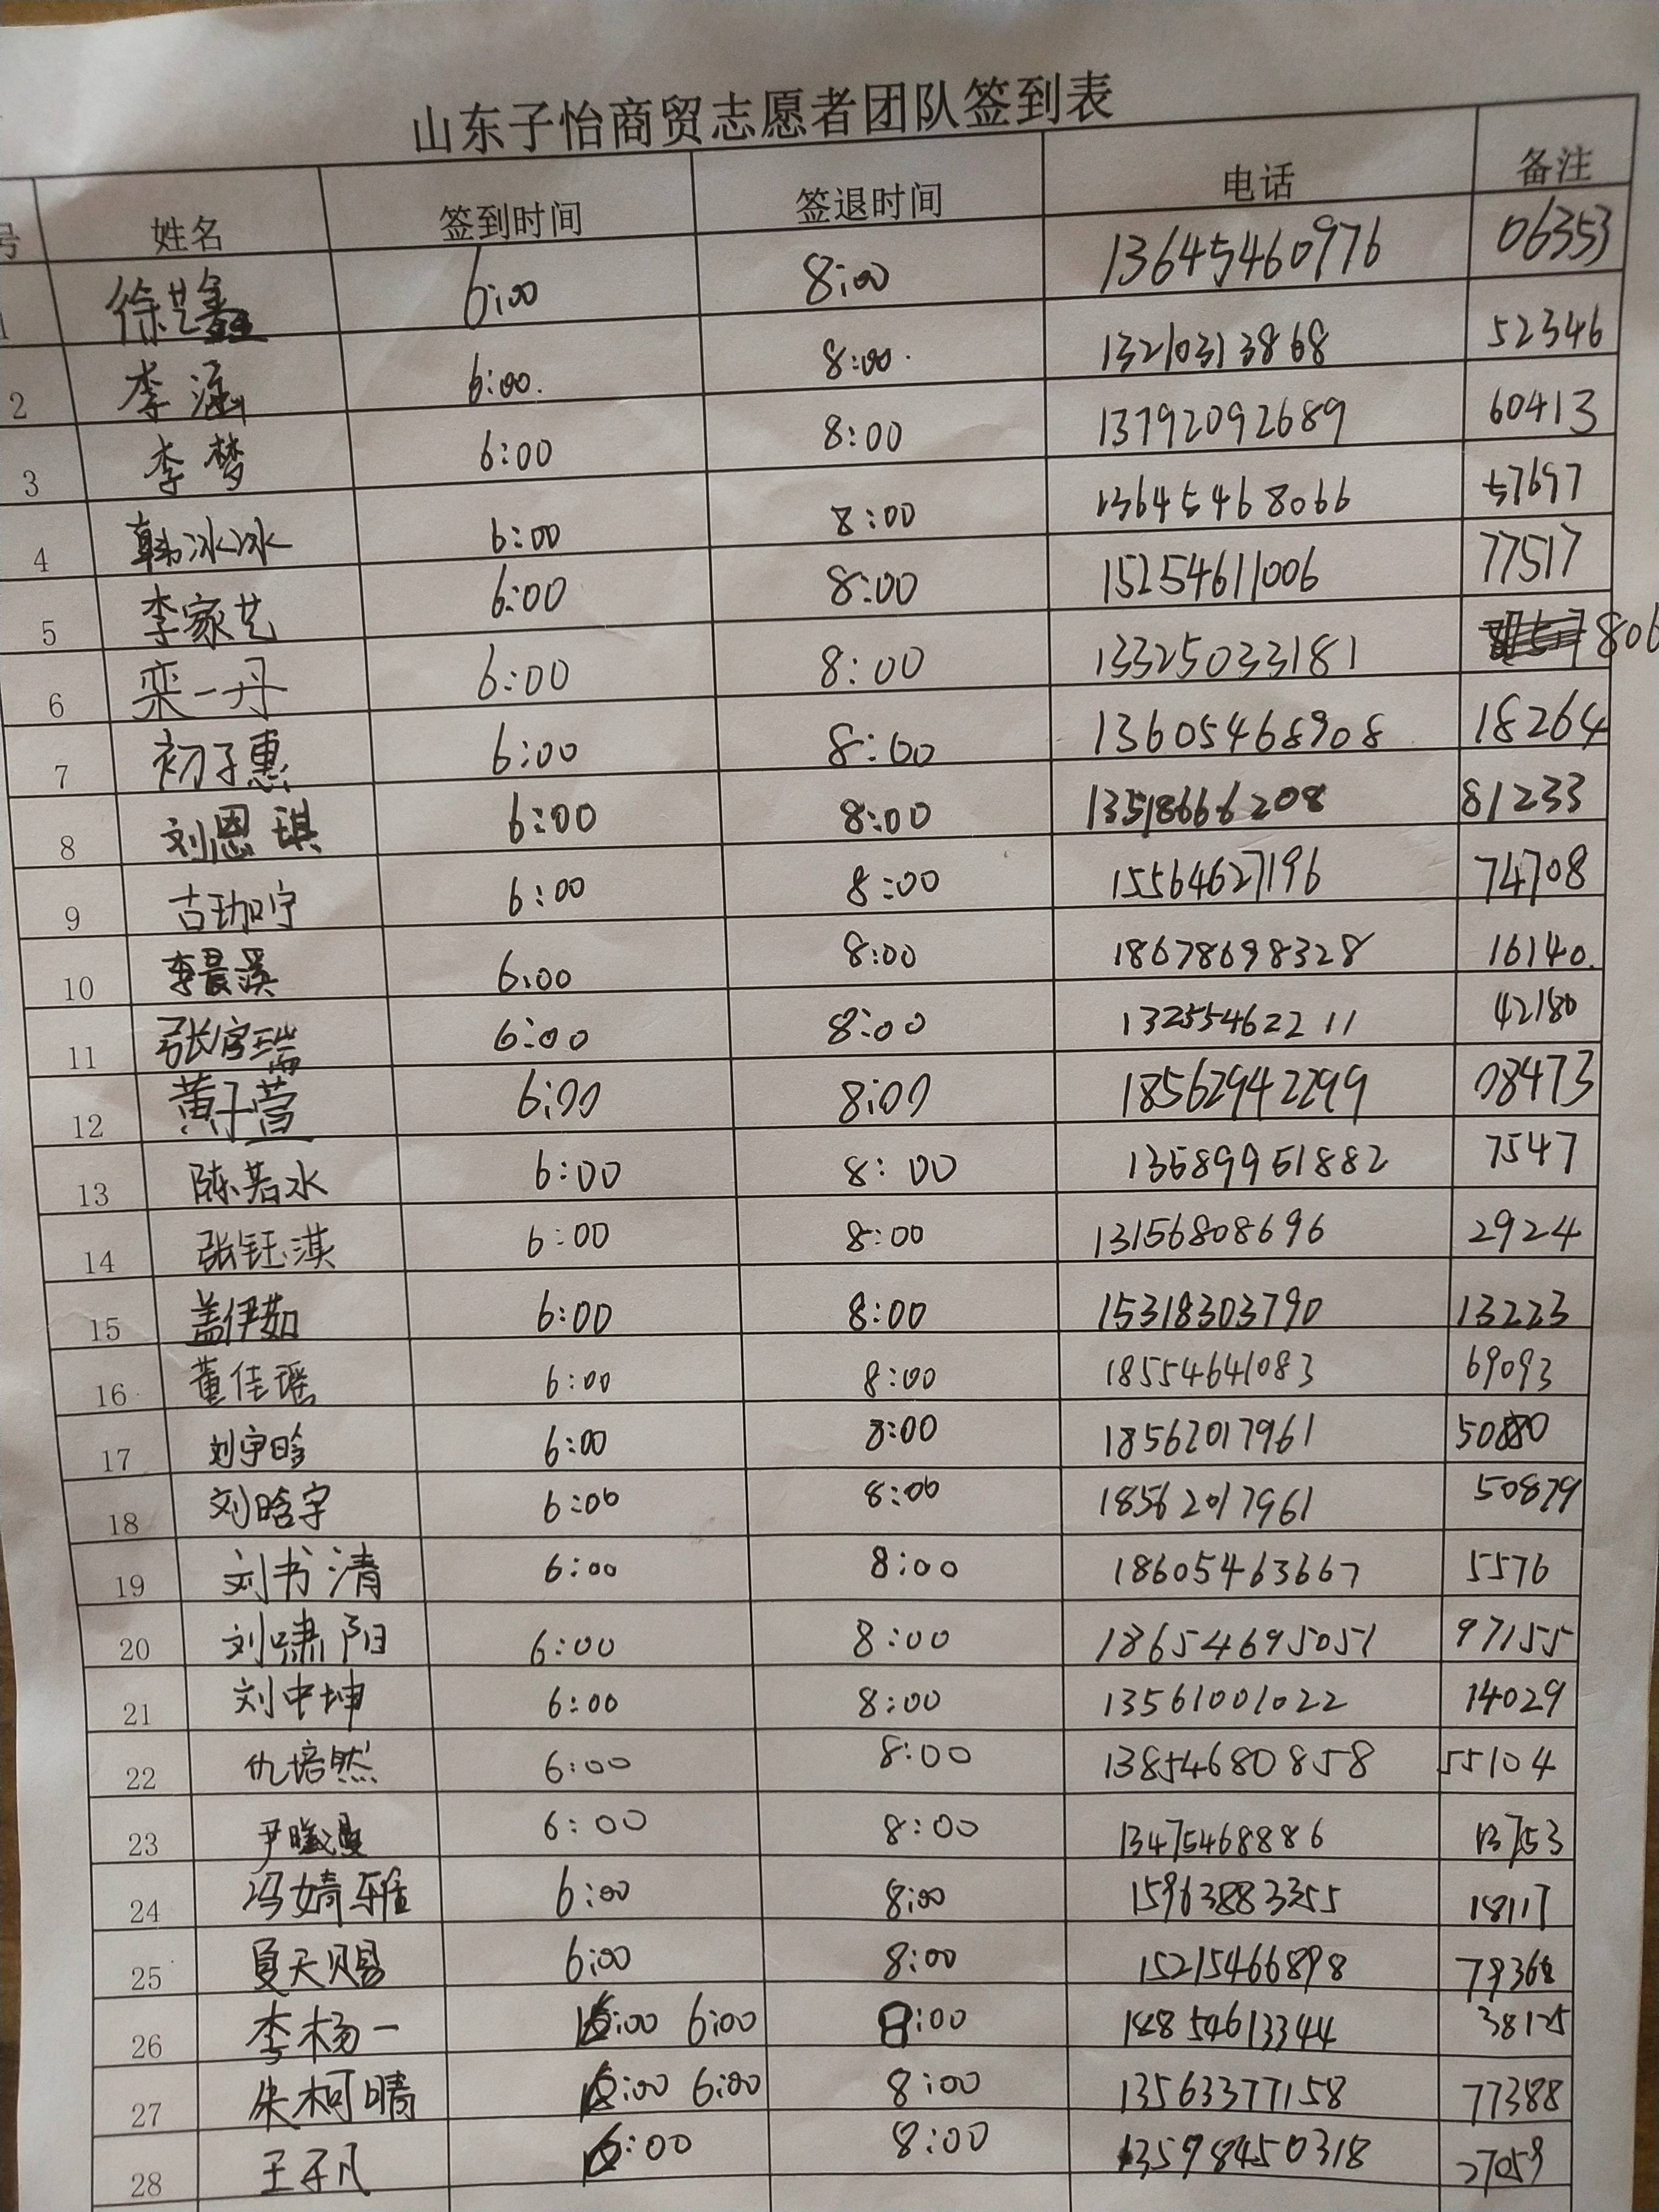 山东子怡商贸志愿者团队签到表
号 姓名 签到时间 签退时间 电话 备注
1 徐艺鑫 6:00 8:00 13645460976 06353
2 李涵 6:00. 8:00. 13210313868 52346
3 李梦 6:00 8:00 13792092689 60413
4 韩冰冰 6:00 8:00 13645468066 57697
5 李家艺 6:00 8:00 15254611006 77517
6 栾一丹 6:00 8:00 13325033181 806
7 初子惠 6:00 8:00 13605468908 18264
8 刘恩琪 6:00 8:00 13518666208 81233
9 古珈宁 6:00 8:00 15564627196 74708
10 李晨溪 6:00 8:00 18678698328 16140.
11 张宸瑞 6:00 8:00 13255462211 42180
12 黄子萱 6:00 8:00 18562942299 08473
13 陈若水 6:00 8:00 13689951882 7547
14 张钰淇 6:00 8:00 13156808696 2924
15 盖伊茹 6:00 8:00 15318303790 13223
16 董佳瑶 6:00 8:00 18554641083 69093
17 刘宇晗 6:00 8:00 18562017961 50880
18 刘晗宇 6:00 8:00 18562017961 50879
19 刘书清 6:00 8:00 18605463667 5576
20 刘啸阳 6:00 8:00 18654695051 97155
21 刘中坤 6:00 8:00 13561001022 14029
22 仇培然 6:00 8:00 13854680858 55104
23 尹 6:00 8:00 13475468886 13753
24 冯婧雅 6:00 8:00 15963883355 18117
25 夏天赐 6:00 8:00 15215466898 79368
26 李杨一 6:00 8:00 18854613344 38125
27 朱柯晴 6:00 8:00 13563377158 77388
28 王子凡 6:00 8:00 13598450318 27059